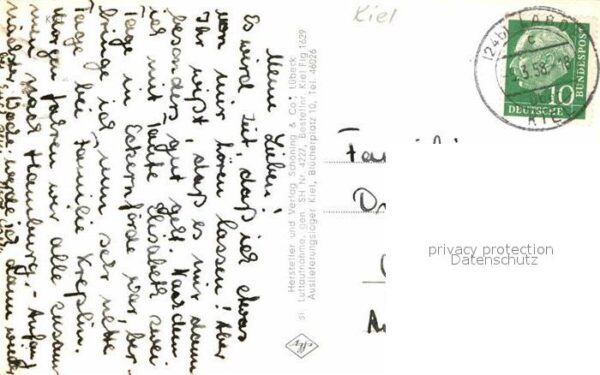 Kiel
Meine Lieben!
Es wird Zeit, daß ich etwas
von mir hören lassen! Aber
Ihr wißt, daß es mir dann
besonders gut geht. Nachdem
ich mit Tante Elisabeth zwei
Tage in Eckernförde war, ver-
bringe ich nun sehr nette
Tage bei Familie Kreplin.
Morgen fahren wir alle zusam
men nach Hamburg. - Anfang
nächster Woche werde ich dann wieder
Hersteller und Verlag Schöning & Co., Lübeck
Luftaufnahme, gen. SH Nr. 4227, Besteller Kiel Flg 1629
Auslieferungslager Kiel, Blücherplatz 10, Tel. 46026
(24b) LABOE
c
3.58.-18
10
DEUTSCHE
BUNDESPOST
privacy protection
Datenschutz